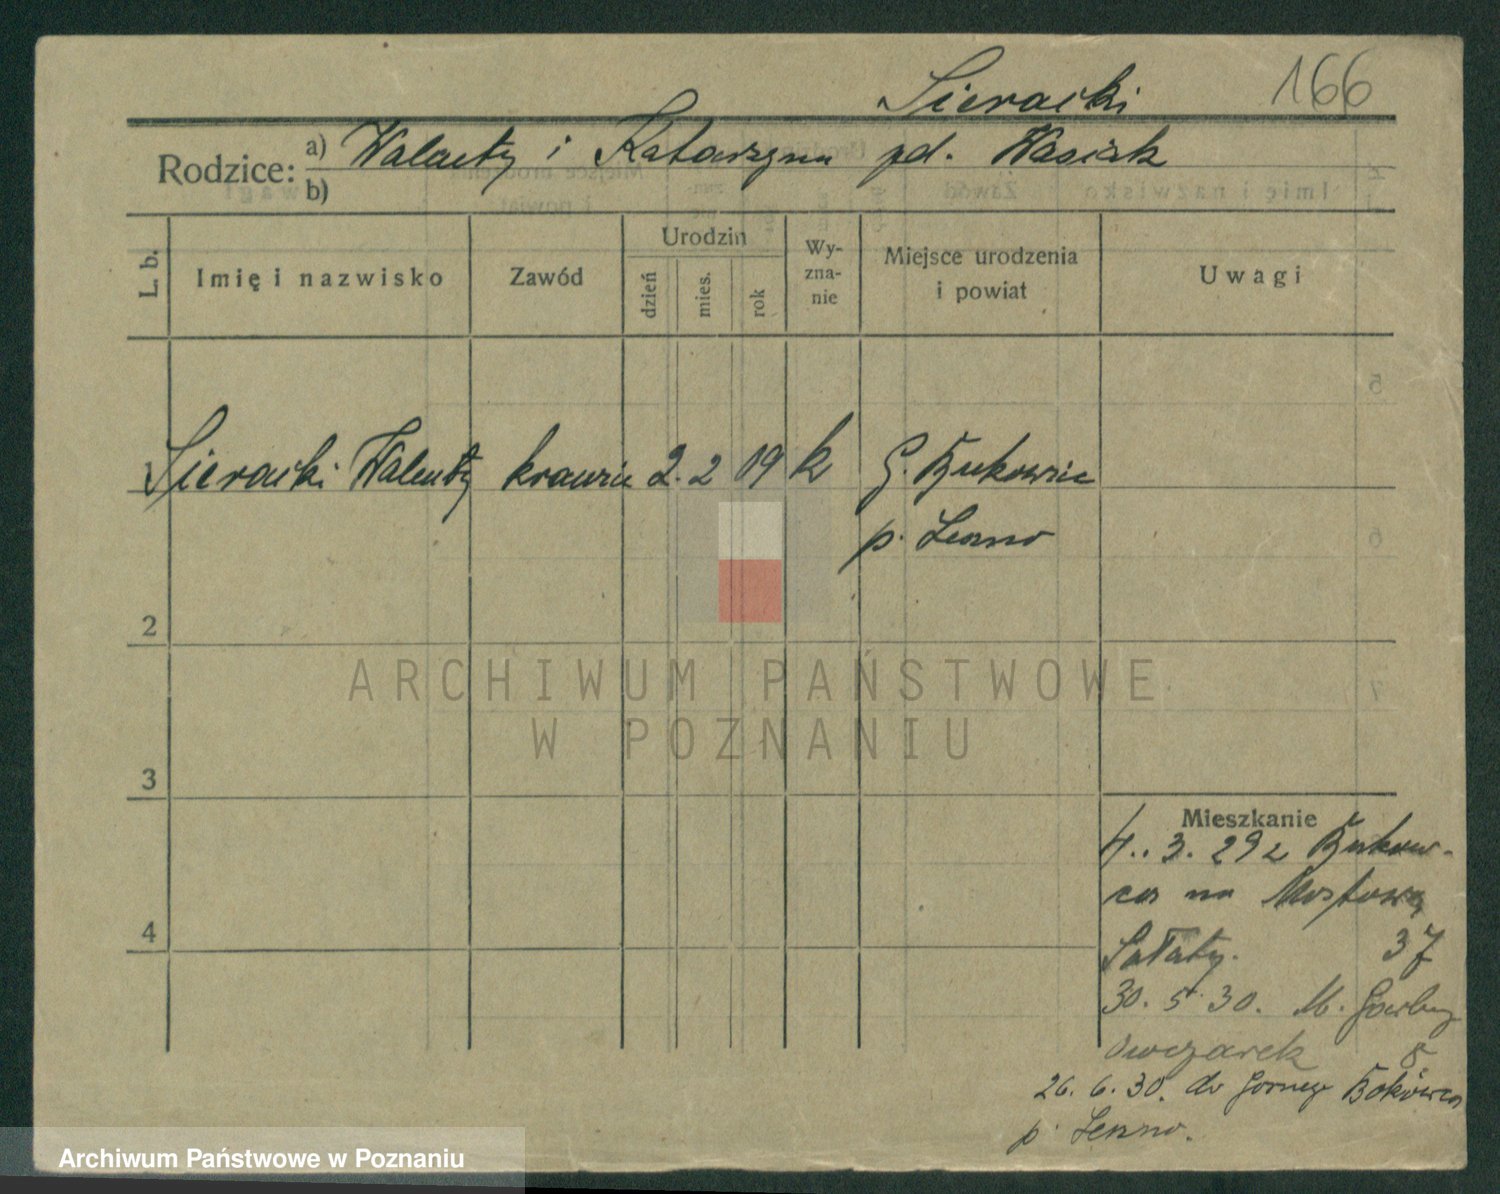 Sieracki 166
Rodzice: a) Walenty i Katarzyna pd. Wasiak
b)
L. b. Imię i nazwisko Zawód Urodzin dzień mies. rok Wyzna-nie Miejsce urodzenia i powiat Uwagi
1 Sieracki Walenty krawiec 2. 2 09 k G. Bukowiec
p. Leszno
2
3
4
Mieszkanie
4. 3. 29 z Bukow-
ca na Mostowa
Sałaty. 37
30. 5 30. M. Garbary
Owczarek 8
26. 6. 30. do Gornego Bukówca
p. Leszno.
ARCHIWUM PAŃSTWOWE
W POZNANIU
Archiwum Państwowe w Poznaniu